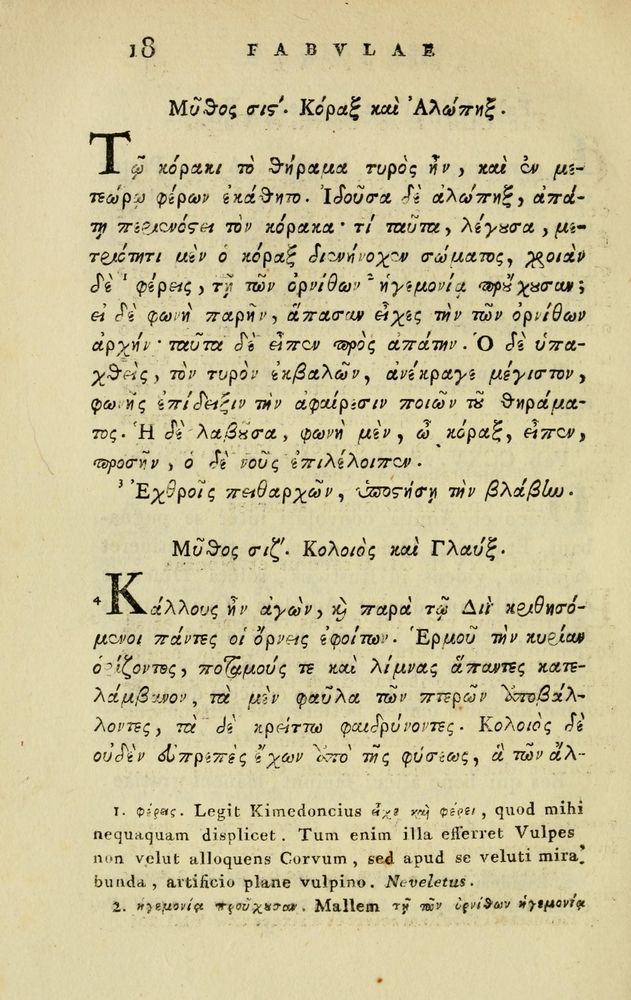 18 FABVLAE
Μῦθος σις'. Κόραξ καὶ Ἀλώπηξ.
Τῷ κόρακι τὸ θήραμα τυρὸς ἦν, καὶ ἐν με-
τεώρῳ φέρων ἐκάθητο. Ἰδοῦσα δὲ ἀλώπηξ, ἀπά-
τῃ περιενόςει τὸν κόρακα· τί ταῦτα, λέγουσα, με-
τριότητι μὲν ὁ κόραξ διενήνοχεν σώματος, χροιὰν
δὲ ¹ φέρεις, τῇ τῶν ὀρνίθων ² ἡγεμονίᾳ προὔχουσαν;
εἰ δὲ φωνὴ παρῆν, ἅπασαν εἶχες τὴν τῶν ὀρνίθων
ἀρχήν· ταῦτα δὲ εἶπεν πρὸς ἀπάτην. Ὁ δὲ ὑπα-
χθεὶς, τὸν τυρὸν ἐκβαλὼν, ἀνέκραγε μέγιστον,
φωνῆς ἐπίδειξιν τὴν ἀφαίρεσιν ποιῶν τοῦ θηράμα-
τος. Ἡ δὲ λαβοῦσα, φωνὴ μὲν, ὦ κόραξ, εἶπεν,
προσῆν, ὁ δὲ νοῦς ἐπιλέλοιπεν.
³ Ἐχθροῖς πειθαρχῶν, ὑποστήσῃ τὴν βλάβην.
Μῦθος σιζ'. Κολοιὸς καὶ Γλαύξ.
⁴ Κάλλους ἦν ἀγὼν, καὶ παρὰ τῷ Διῒ κριθησό-
μενοι πάντες οἱ ὄρνεις ἐφοίτων. Ἑρμοῦ τὴν κυρίαν
ὁρίζοντος, ποταμούς τε καὶ λίμνας ἅπαντες κατε-
λάμβανον, τὰ μὲν φαῦλα τῶν πτερῶν ἀποβάλ-
λοντες, τὰ δὲ κρείττω φαιδρύνοντες. Κολοιὸς δὲ
οὐδὲν εὐπρεπὲς ἔχων ἀπὸ τῆς φύσεως, ἃ τῶν ἄλ-
1. φέρεις. Legit Kimedoncius εἶχε καὶ φέρει, quod mihi
nequaquam displicet. Tum enim illa efferret Vulpes
non velut alloquens Corvum, sed apud se veluti mira
bunda, artificio plane vulpino. Neveletus.
2. ἡγεμονίᾳ προὔχουσαν. Mallem τῇ τῶν ὀρνίθων ἡγεμονίᾳ